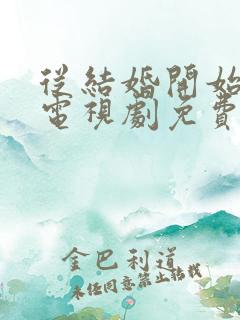 從結婚開始
電視劇免費
金巴利道
未经同意禁止转载